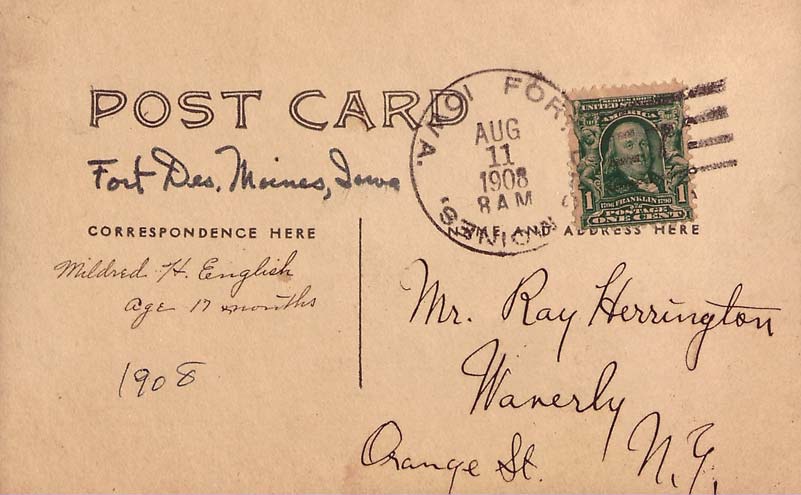 POST CARD
Fort Des. Moines, Iowa
CORRESPONDENCE HERE
Mildred H. English
age 17 months
1908
FORT
MOINES,
IOWA.
AUG
11
1908
8 AM
UNITED STATES
AMERICA
1 1
1706 FRANKLIN 1790
POSTAGE
ONE CENT
NAME AND ADDRESS HERE
Mr. Ray Herrington
Waverly
Orange St. N.Y.